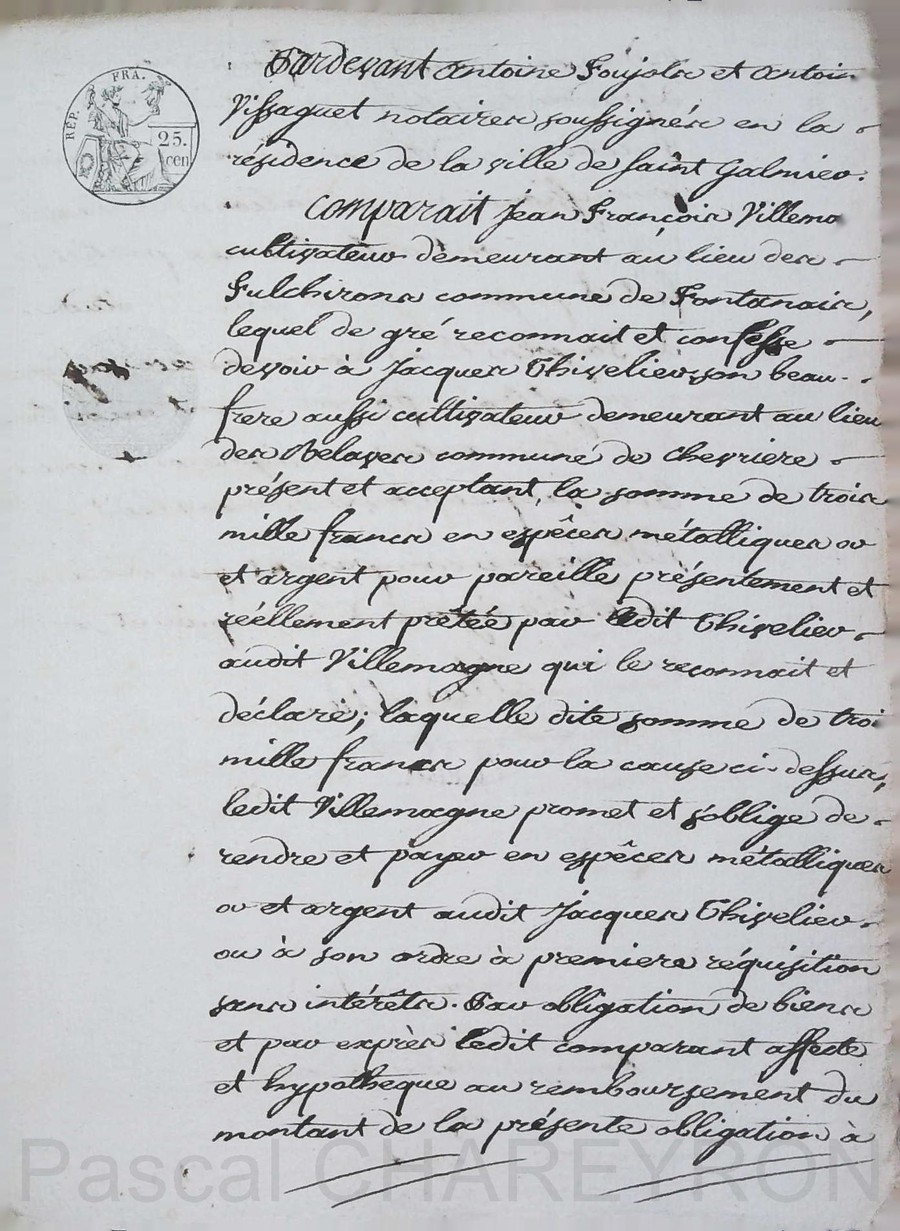 RÉP. FRA.
25.
cen
Pardevant antoine Foujols et antoin
Vissaguet notaires soussignés en la
résidence de la ville de saint Galmier.
comparait jean François Villema
cultivateur demeurant au lieu des
Fulchirons commune de Fontanais,
lequel de gré reconnait et confesse
devoir à jacques Thivelier son beau-
frere aussi cultivateur demeurant au lieu
des commune de chevriere
présent et acceptant, la somme de trois
mille francs en espêces métalliques or
et argent pour pareille présentement et
réellement prêtée par ledit Thivelier
audit Villemagne qui le reconnait et
déclare; laquelle dite somme de troi
mille francs pour la cause ci-dessus,
ledit Villemagne promet et s'oblige de
rendre et payer en espêces métalliques
or et argent audit jacques Thivelier
ou à son ordre à premiere réquisition
sans intérêts. Par obligation de biens
et par exprès ledit comparant affecte
et hypotheque au remboursement du
montant de la présente obligation à
Pascal CHAREYRON